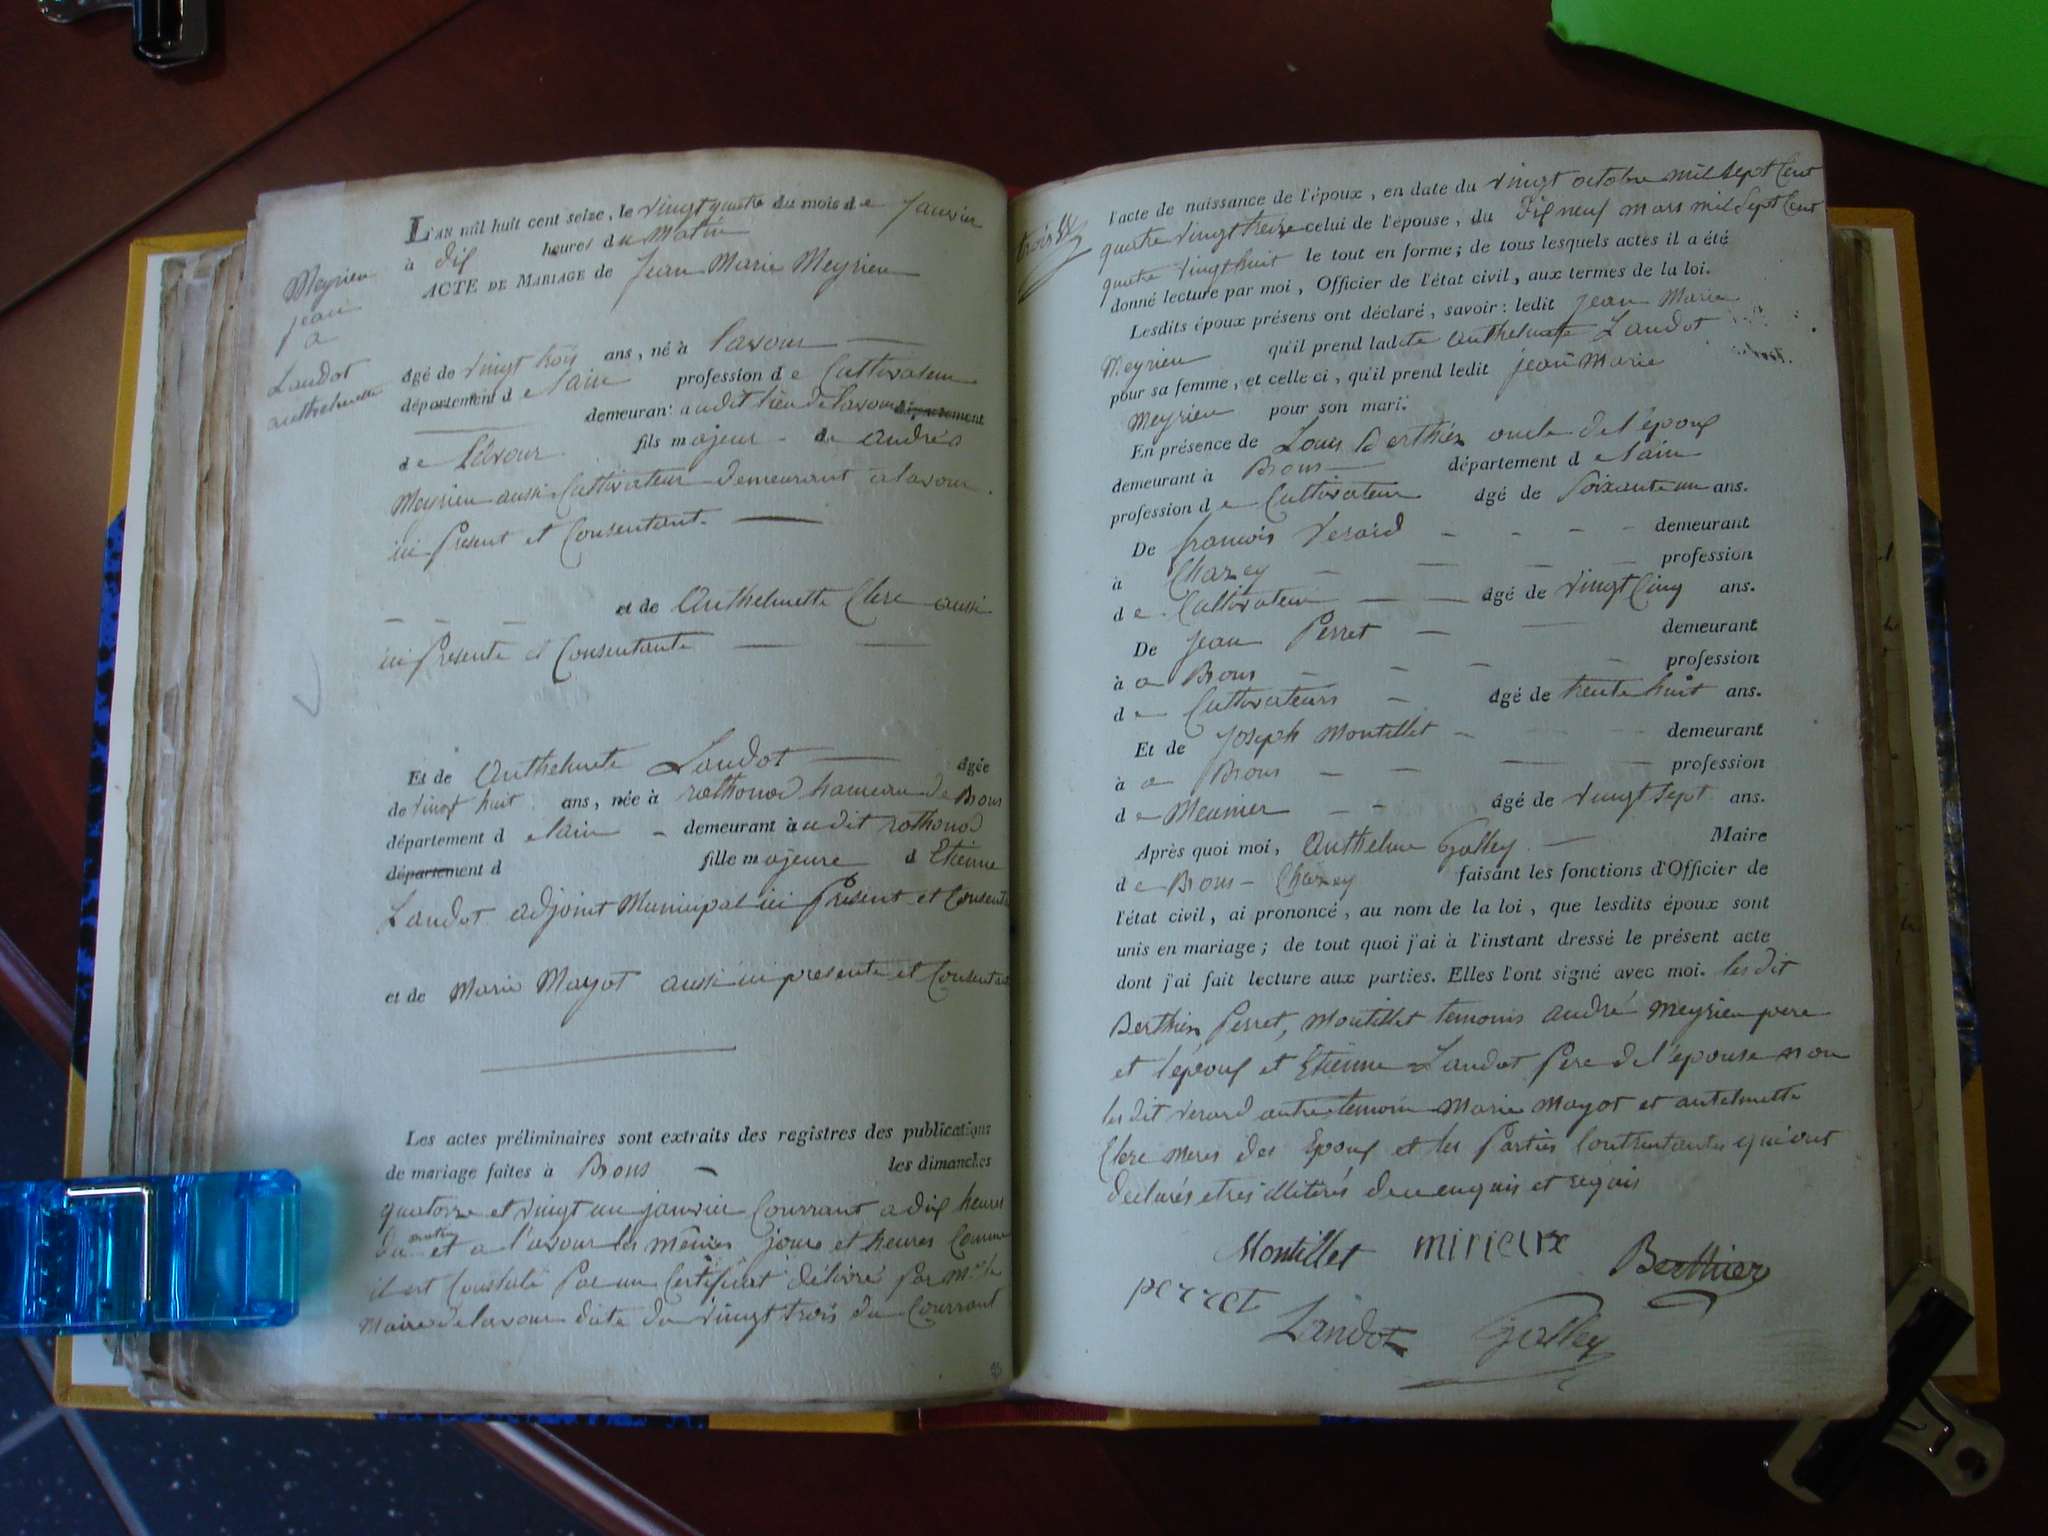 Meyrieu
jean
a
Landot
anthelmette
L'an mil huit cent seize, le vingt quatre du mois de Janvier
à dix heures du Matin
ACTE DE MARIAGE de Jean Marie Meyrieu
âgé de vingt trois ans, né à lavour
département de lain profession de Cultivateur
demeurant audit lieu de lavour département
de lavour fils majeur de andré
Meyrieu aussi Cultivateur demeurant a lavour
ici Present et Consentant.
et de Anthelmette Clerc aussi
ici Presente et Consentante
Et de Anthelmete Landot âgée
de vingt huit ans, née à rothonod hameau de Brons
département de lain demeurant audit rothonod
département d fille majeure d Etienne
Landot adjoint Municipal ici Present et Consent
et de Marie Mayot aussi ici presente et Consentan
Les actes préliminaires sont extraits des registres des publications
de mariage faites à Brons les dimanches
quatorze et vingt un janvier Courrant a dix heures
du matin et a lavour les mêmes jours et heures Comme
il est Constaté Par un Certificat délivré Par Mr le
Maire de lavour date du vingt trois du Courrant
trois
l'acte de naissance de l'époux, en date du vingt octobre mil sept Cent
quatre vingt treize celui de l'épouse, du Dix neuf mars mil Sept Cent
quatre vingt huit le tout en forme; de tous lesquels actes il a été
donné lecture par moi, Officier de l'état civil, aux termes de la loi.
Lesdits époux présens ont déclaré, savoir: ledit Jean Marie
Meyrieu qu'il prend ladite anthelmete Landot
pour sa femme, et celle ci, qu'il prend ledit jean Marie
Meyrieu pour son mari.
En présence de Louis Berthier oncle de l'époux
demeurant à Brons département de lain
profession de Cultivateur âgé de Soixante un ans.
De francois Verard demeurant
à Chazey profession
de Cultivateur âgé de vingt Cinq ans.
De Jean Perret demeurant
à a Brons profession
de Cultivateurs âgé de trente huit ans.
Et de Joseph Montillet demeurant
à a Brons profession
de Meunier âgé de vingt sept ans.
Après quoi moi, Anthelme Galley Maire
de Brons - Chazey faisant les fonctions d'Officier de
l'état civil, ai prononcé, au nom de la loi, que lesdits époux sont
unis en mariage; de tout quoi j'ai à l'instant dressé le présent acte
dont j'ai fait lecture aux parties. Elles l'ont signé avec moi. les dit
Berthier Perret, Montillet temoins andré Meyrieu pere
et l'époux et Etienne Landot Pere de l'epouse non
les dit verard autre temoin Marie Mayot et antelmette
Clerc meres des Epoux et les Parties Contractantes qui ont
declarés etres illiterés de ce enquis et requis
Montillet mirieux Berthier
perret Landot Galley